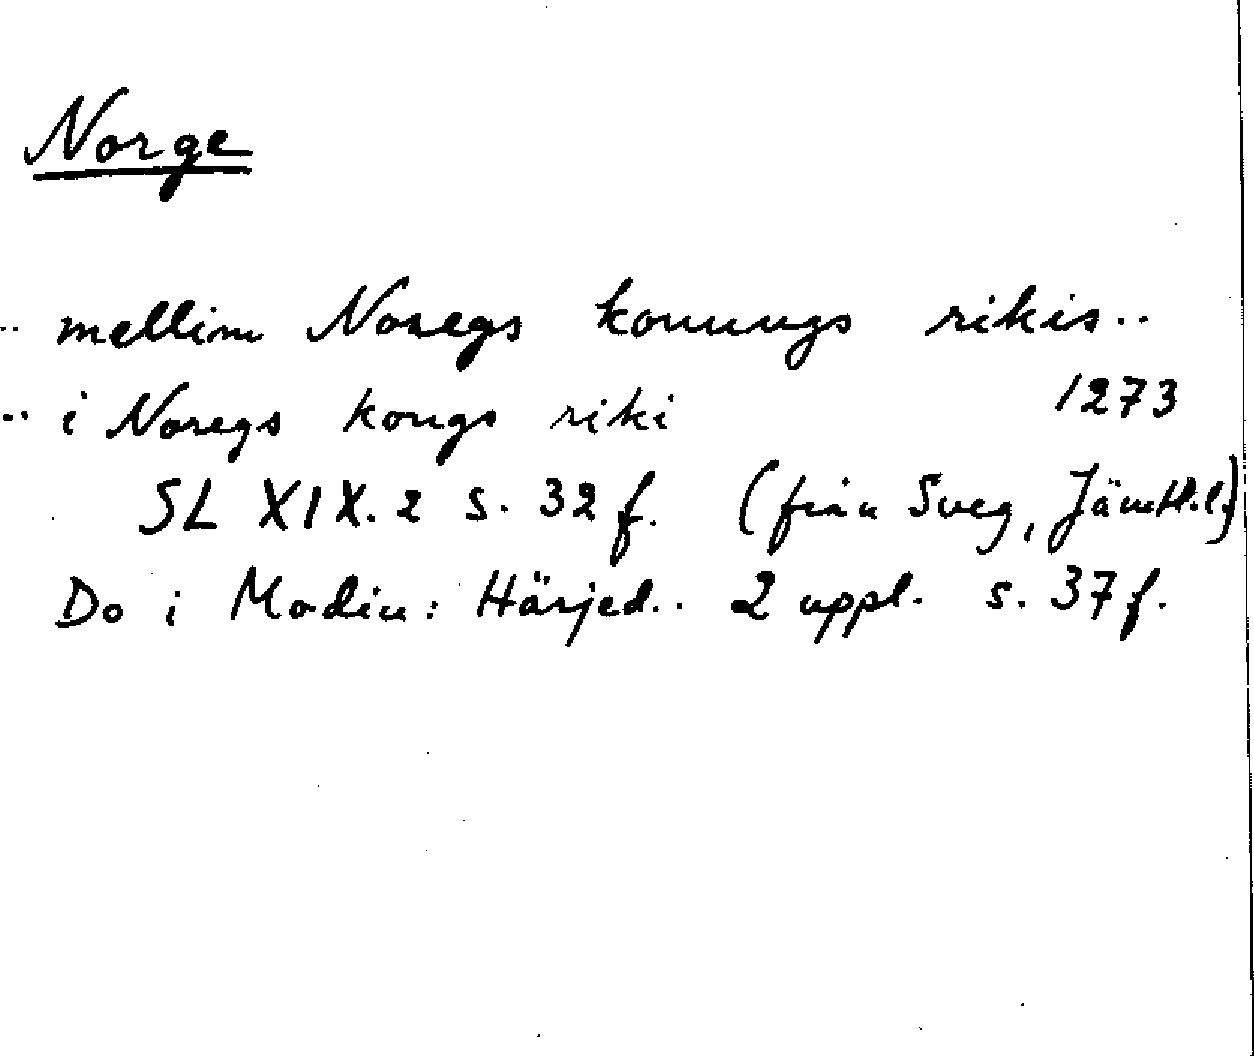 Norge
.. mellim Noregs konungs rikis..
.. i Noregs kongs riki 1273
SL XIX. 2 s. 32 f. (från Sveg, Jämtl.l.)
Do i Modin: Härjed.. 2 uppl. s. 37 f.